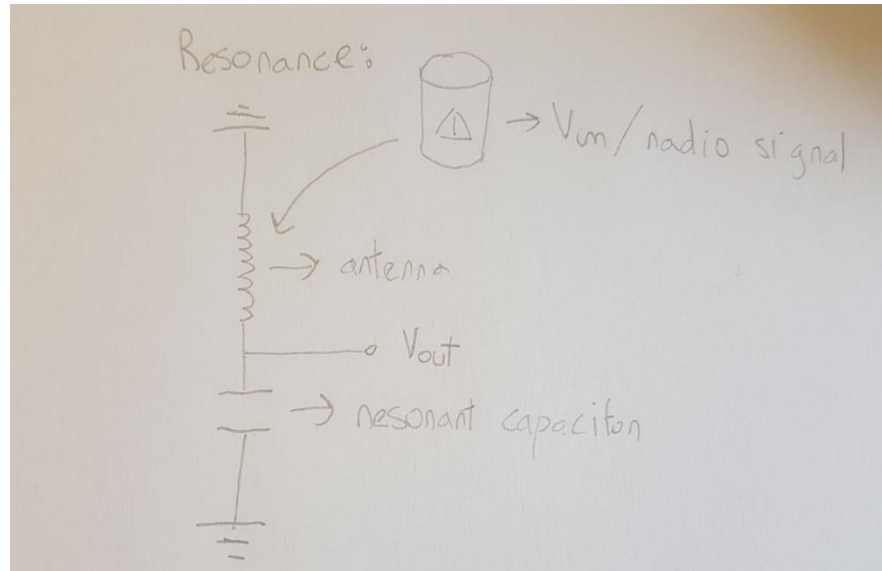 Resonance:
→ Vin/radio signal
→ antenna
Vout
→ resonant capacitor